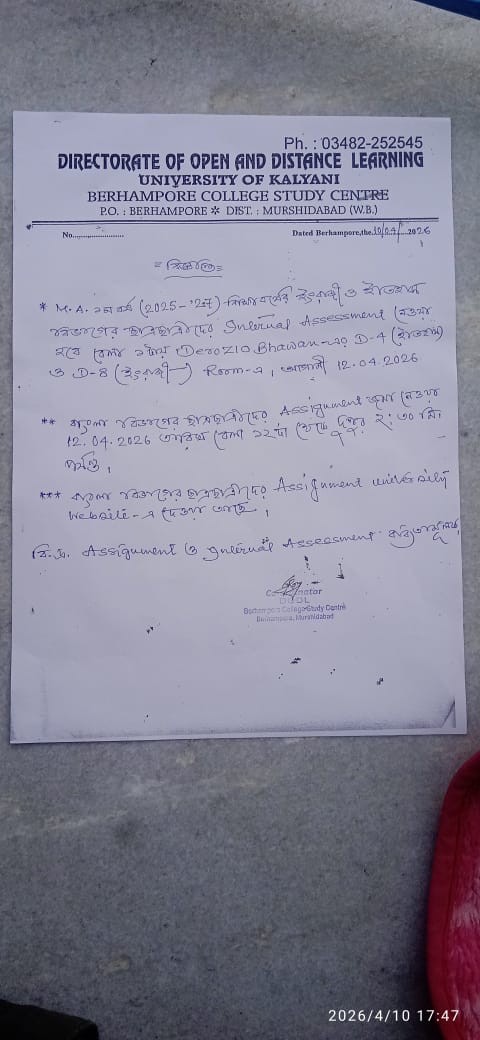 Ph. : 03482-252545
DIRECTORATE OF OPEN AND DISTANCE LEARNING
UNIVERSITY OF KALYANI
BERHAMPORE COLLEGE STUDY CENTRE
P.O. : BERHAMPORE * DIST. : MURSHIDABAD (W.B.)
No........................ Dated Berhampore,the.10/04/ 2026
= বিজ্ঞপ্তি =
* M.A. ১ম বর্ষ (2025-'27) শিক্ষাবর্ষের ইংরাজী ও ইতিহাস
বিভাগের ছাত্রছাত্রীদের Internal Assessment নেওয়া
হবে বেলা ১টায় Derozio Bhawan-এর D-4 (ইতিহাস)
ও D-8 (ইংরাজী) Room-এ, আগামী 12.04.2026
** বাংলা বিভাগের ছাত্রছাত্রীদের Assignment জমা নেওয়া
12.04.2026 তারিখ বেলা ১২টা থেকে দুপুর ২:৩০ মি
পর্যন্ত।
*** বাংলা বিভাগের ছাত্রছাত্রীদের Assignment university
Website-এ দেওয়া আছে।
বি.দ্র. Assignment ও Internal Assessment বাধ্যতামূলক
Coordinator
DODL
Berhampore College Study Centre
Berhampore, Murshidabad
2026/4/10 17:47